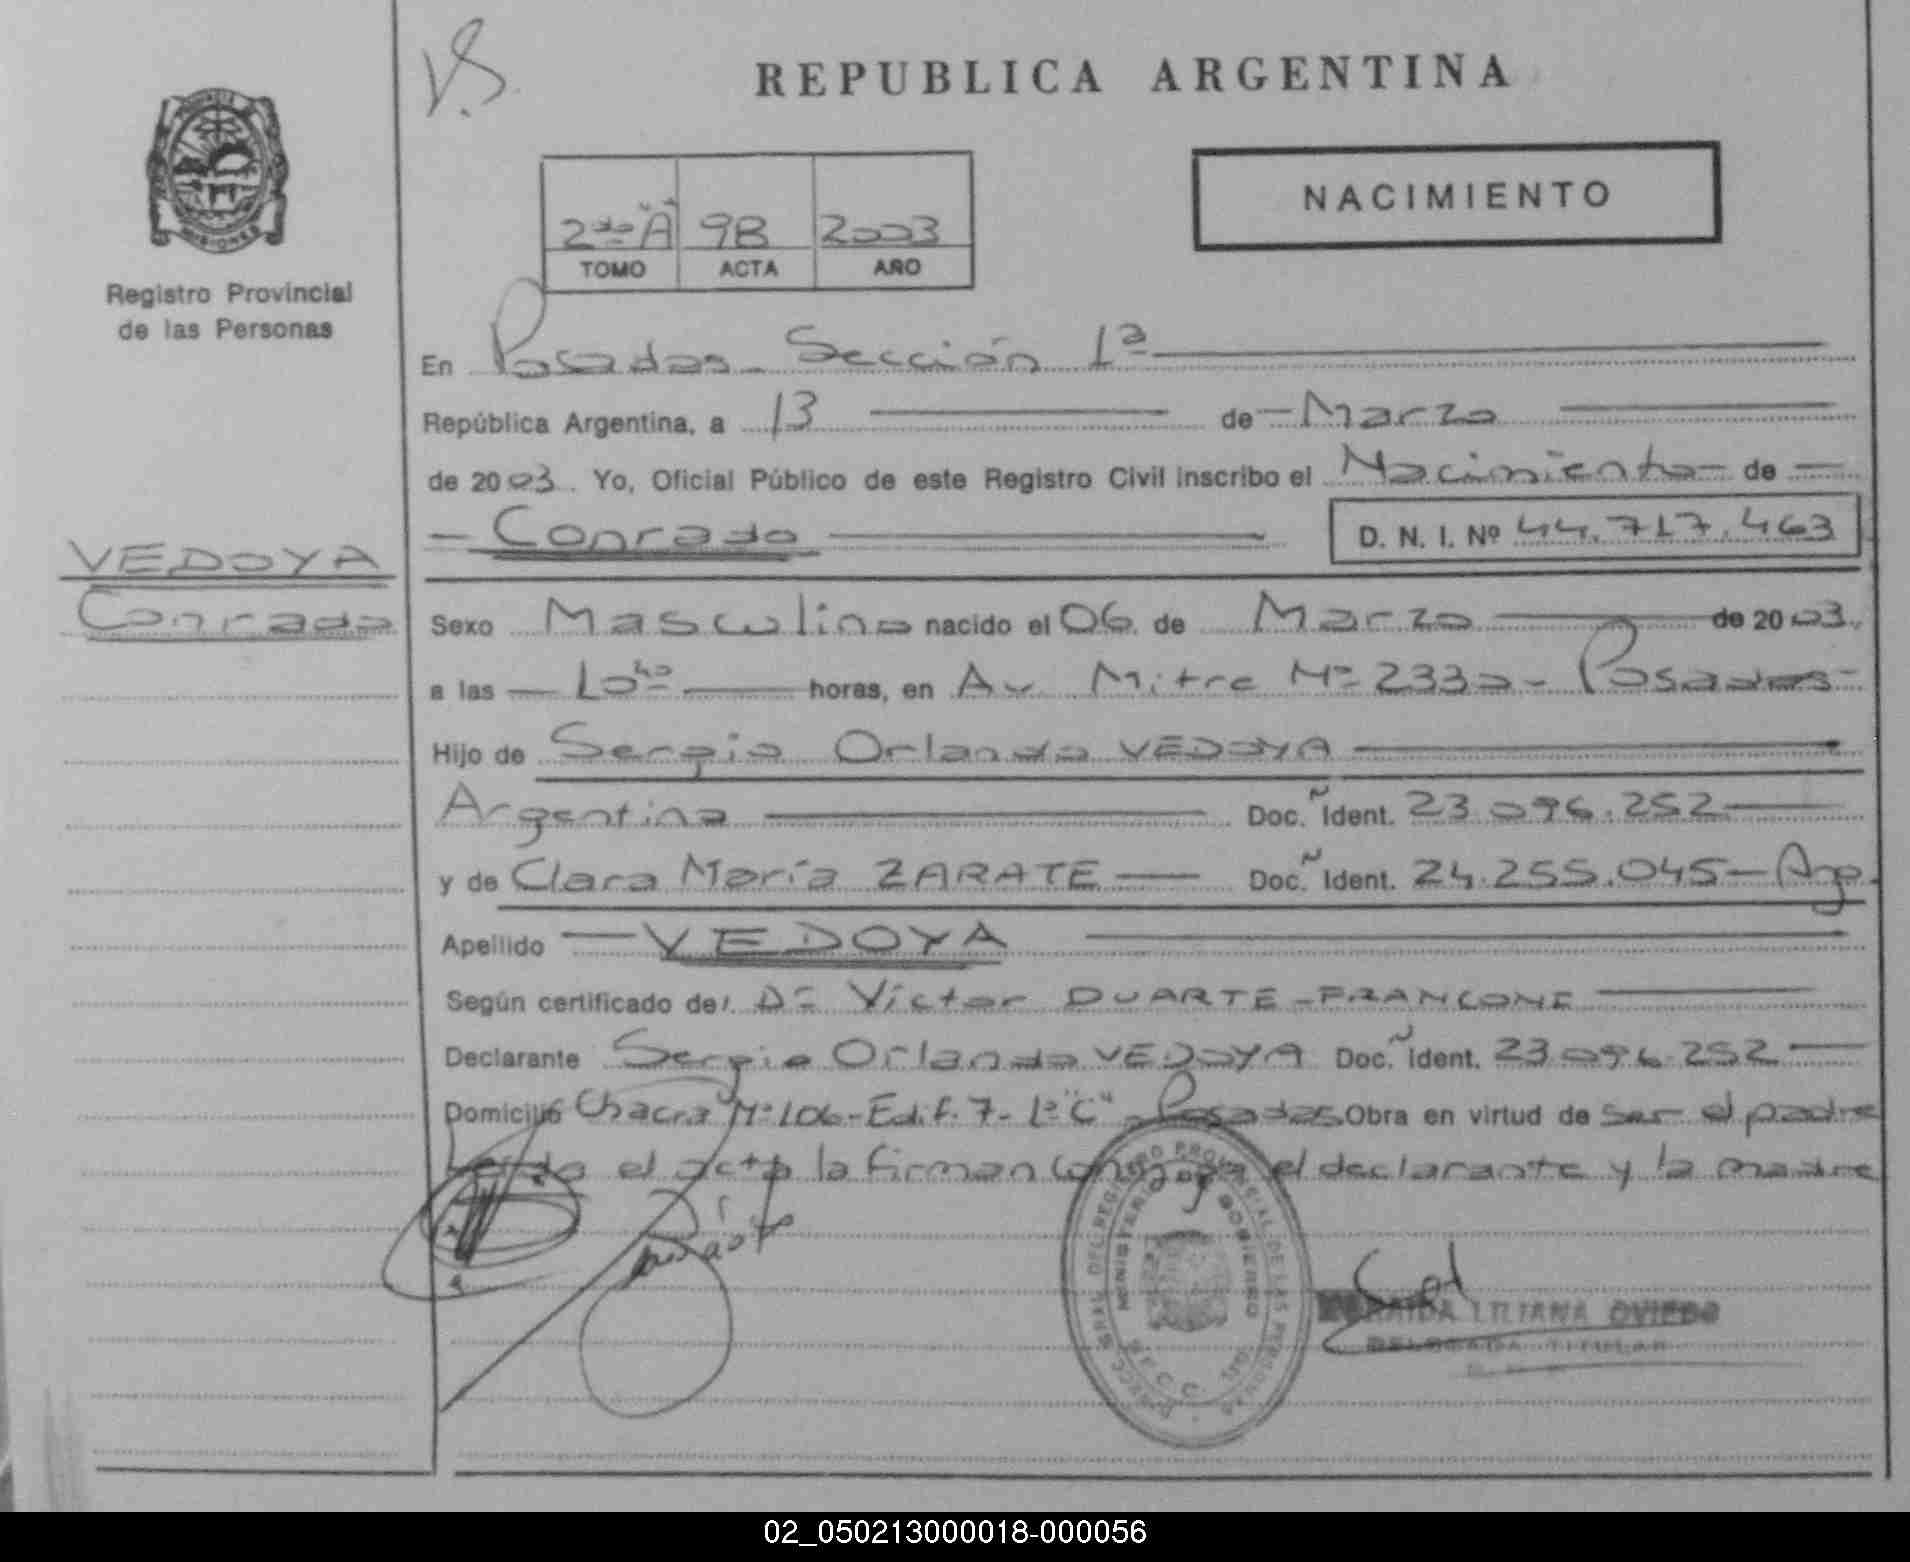 V.S.
REPUBLICA ARGENTINA
NACIMIENTO
2do "A" 98 2003
TOMO ACTA AÑO
PROVINCIA DE MISIONES
Registro Provincial
de las Personas
En Posadas - Sección 1ª
República Argentina, a 13 de Marzo
de 2003. Yo, Oficial Público de este Registro Civil inscribo el Nacimiento de
Conrado D. N. I. Nº 44.717.463
VEDOYA
Conrado
Sexo Masculino nacido el 06 de Marzo de 2003.
a las 10 40 horas, en Av. Mitre Nº 2330 - Posadas
Hijo de Sergio Orlando VEDOYA
Argentina Doc. Ident. 23.096.252
y de Clara María ZARATE Doc. Ident. 24.255.045 - Arg.
Apellido VEDOYA
Según certificado del Dr. Víctor DUARTE - FRANCONE
Declarante Sergio Orlando VEDOYA Doc. Ident. 23.096.252
Domicilio Chacra Nº 106 - Edif. 7 - 1º "C" - Posadas Obra en virtud de ser el padre
Leída el acta la firman conmigo el declarante y la madre
LILIANA OVIEDO
DELEGADA TITULAR
02_050213000018-000056